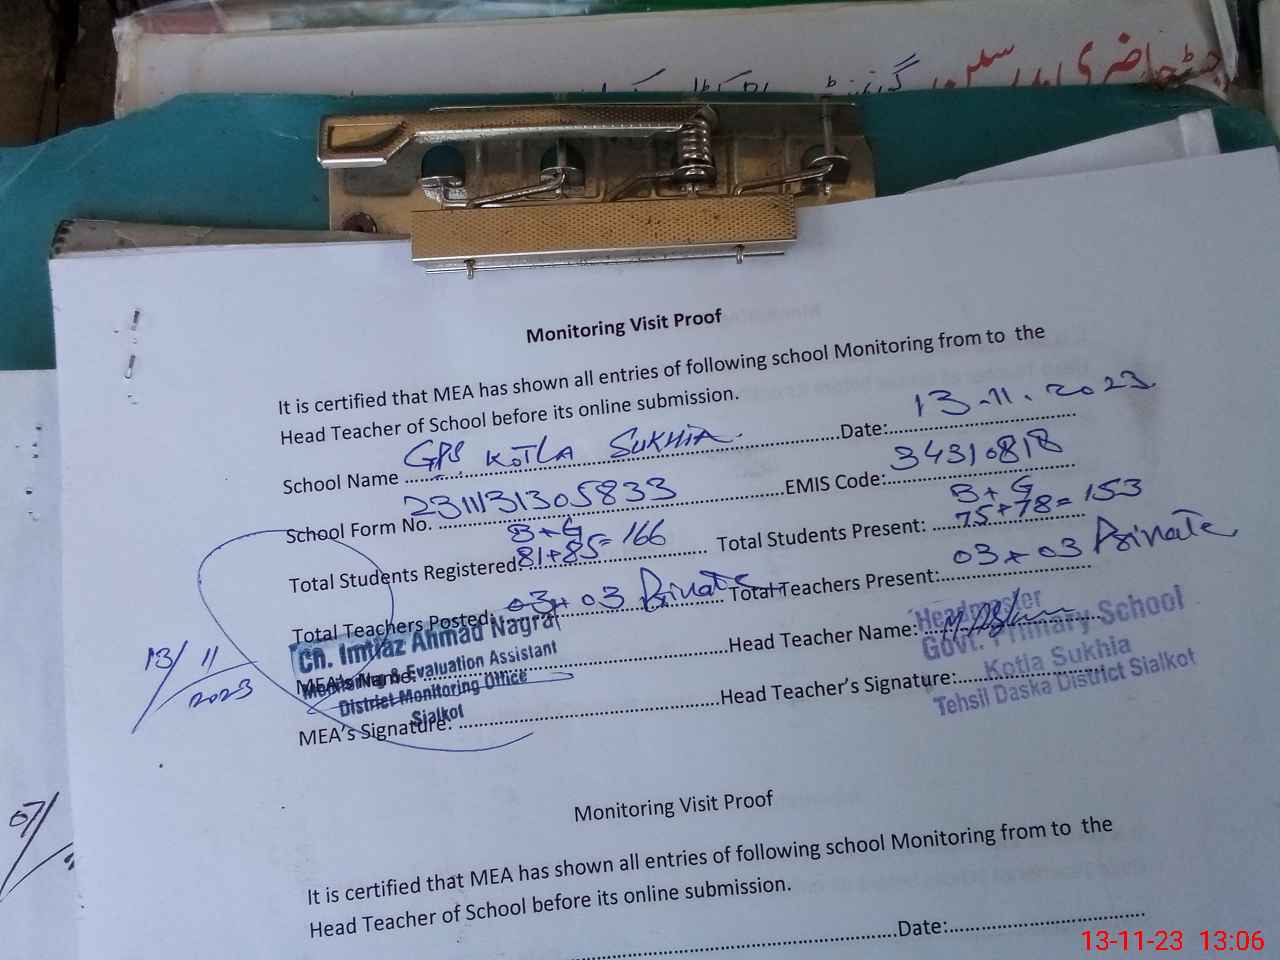 Monitoring Visit Proof
It is certified that MEA has shown all entries of following school Monitoring from to the
Head Teacher of School before its online submission.
School Name GPS KOTLA SUKHIA. Date: 13-11-2023
School Form No. 2311131305833 EMIS Code: 34310818
B+G B+G
Total Students Registered: 81+85=166 Total Students Present: 75+78=153
Total Teachers Posted: 03+03 Private Total Teachers Present: 03+03 Private
MEA's Name: Head Teacher Name:
Ch. Imtiaz Ahmad Nagra
Monitoring & Evaluation Assistant
District Monitoring Office
Sialkot
Headmaster
Govt. Primary School
Kotla Sukhia
Tehsil Daska District Sialkot
MEA's Signature: Head Teacher's Signature:
13/11/2023
07/
Monitoring Visit Proof
It is certified that MEA has shown all entries of following school Monitoring from to the
Head Teacher of School before its online submission.
Date:
13-11-23 13:06